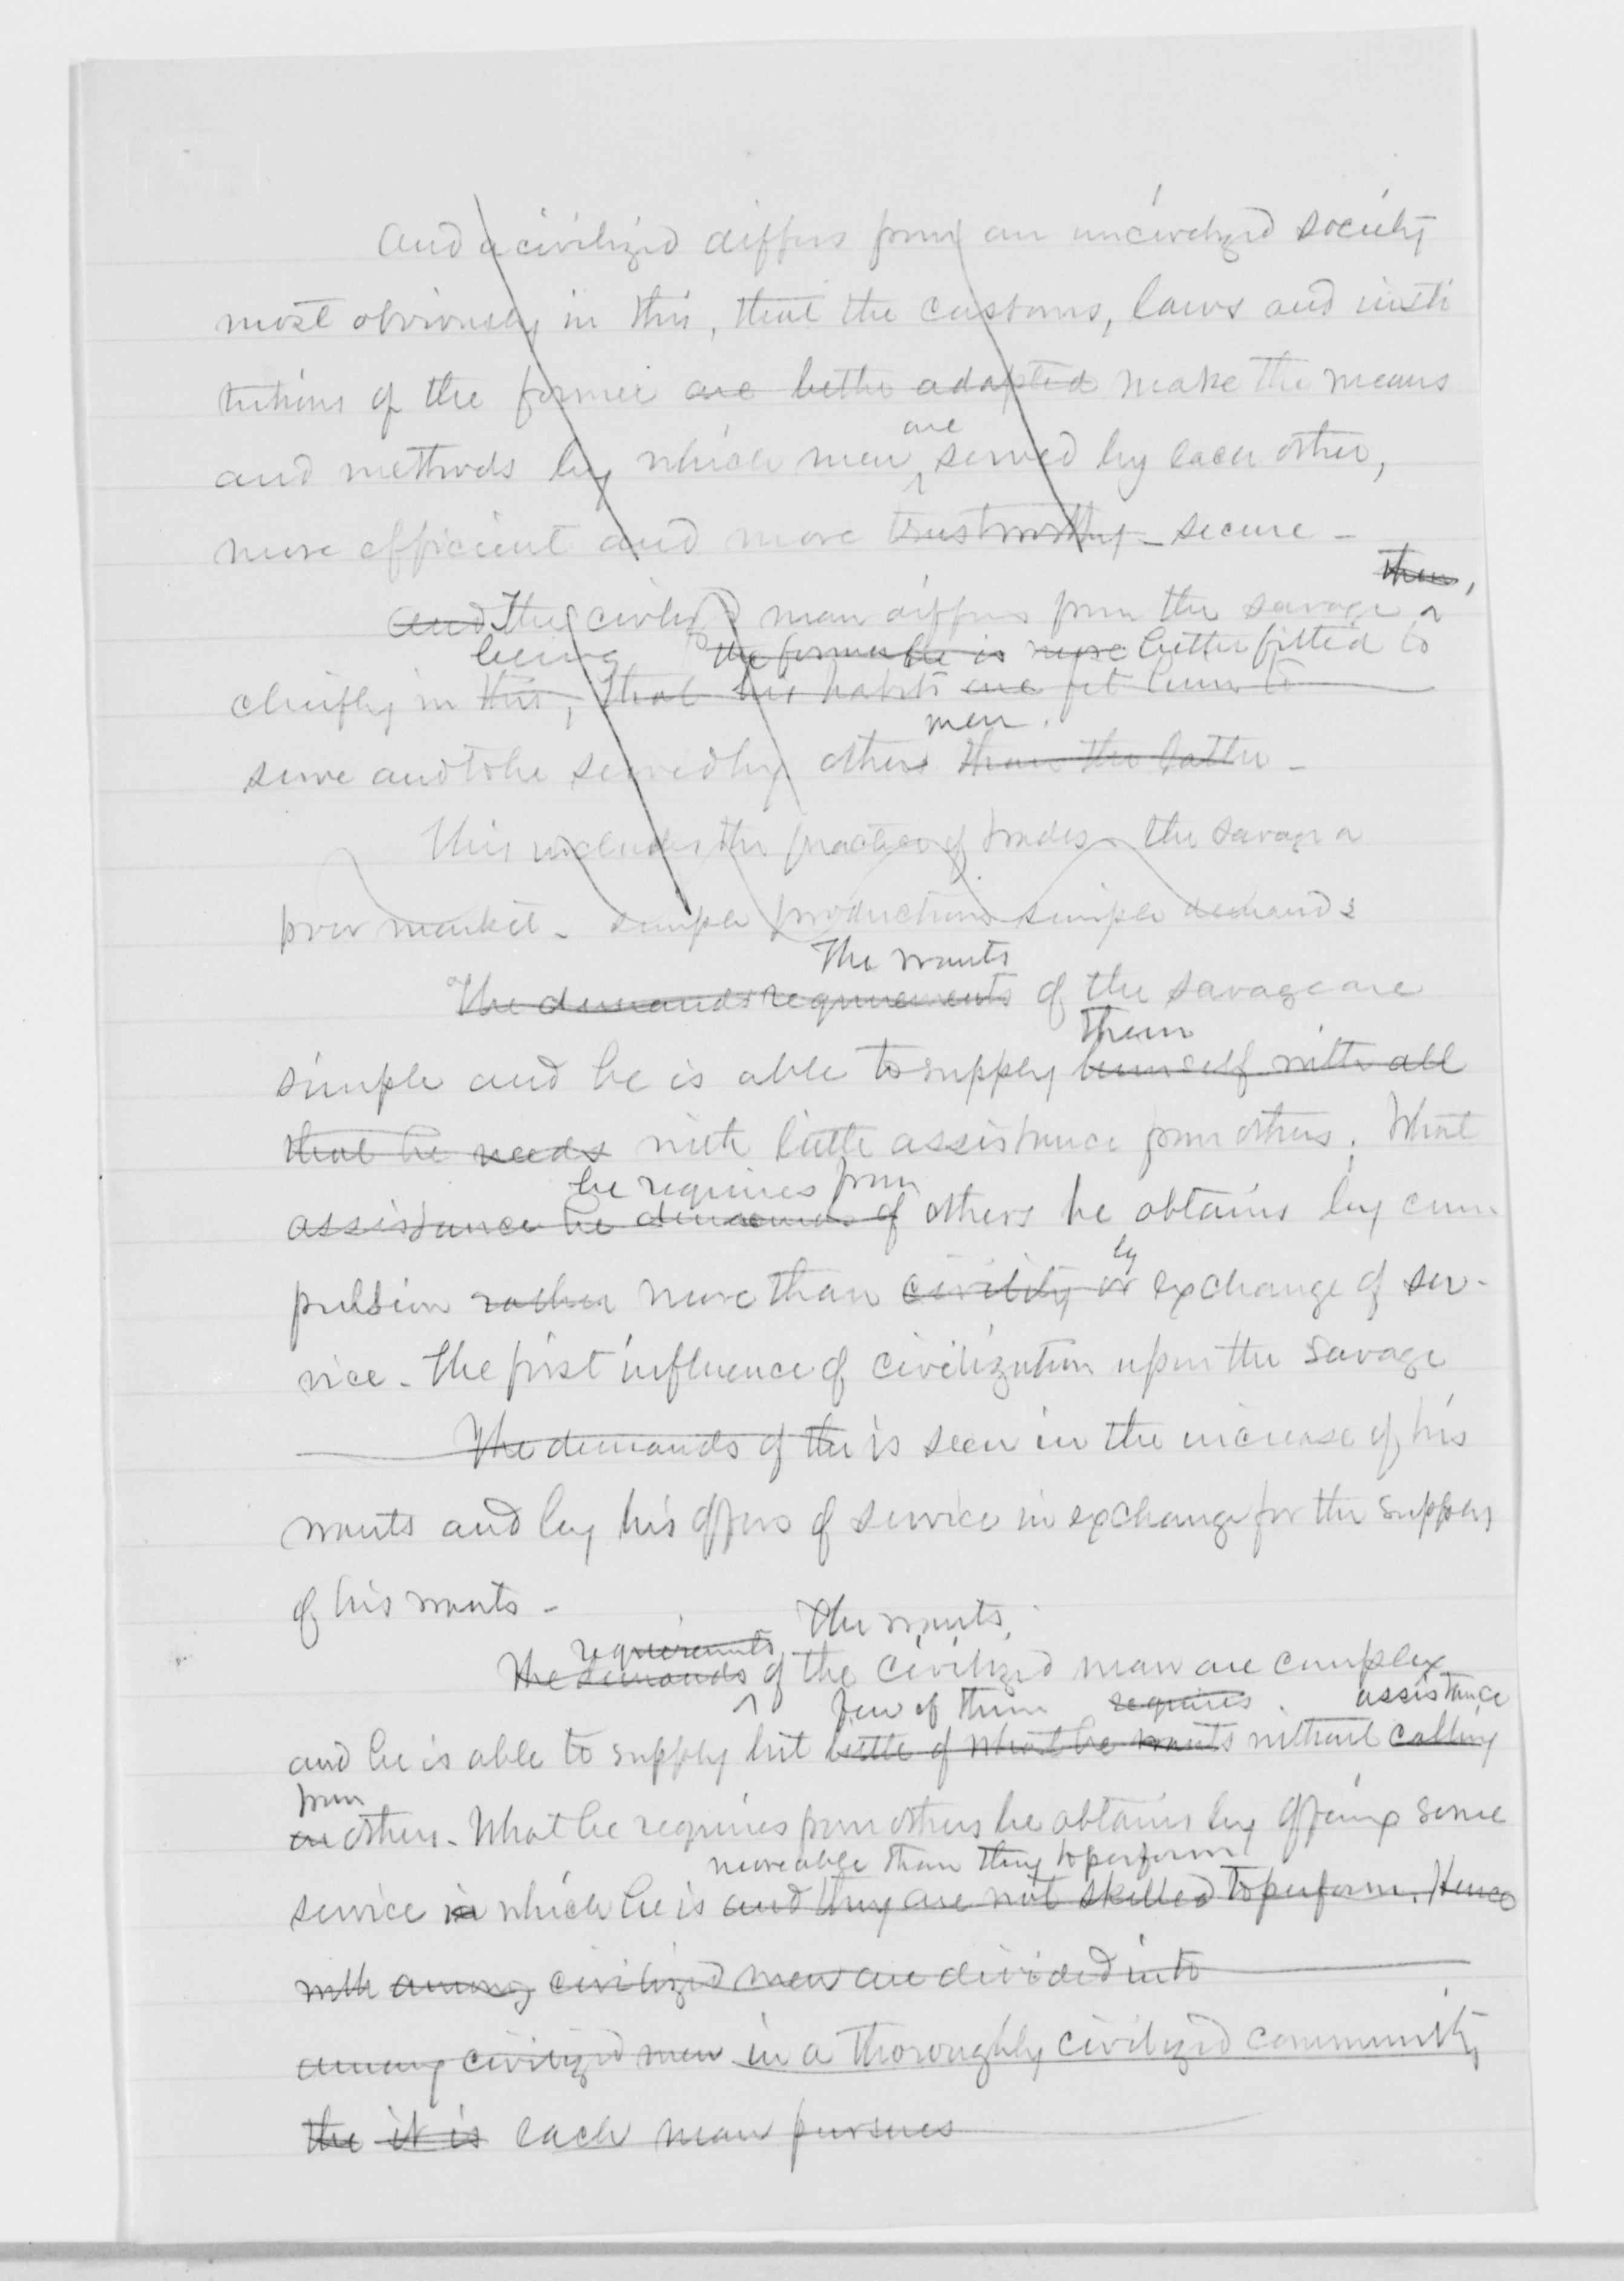 And a civilized differs from an uncivelized society
most obviously in this, that the customs, laws and insti
tutions of the former are better adapted make the means
are
and methods by which men served by each other,
more efficient and more trustworthy - secure -
then,
And The civilized man differs from the savage
being the former he is more better fitted to
chiefly in this, that his habits are fit him to
men.
serve and to be served by others than the latter -
This includes the practice of trades - the savage a
poor market - simple productions simple demands
The wants
The demands requirements of the savage are
them
simple and he is able to supply himself with all
that he needs with little assistance from others. What
he requires from
assistance he demands of others he obtains by com
by
pulsion rather more than civility or exchange of ser-
vice - The first influence of civilization upon the savage
The demands of the is seen in the increase of his
wants and by his offers of service in exchange for the supply
of his wants -
requirements The wants
The demands of the civilized man are complex
few of them requires assistance
and he is able to supply but little of what he wants without calling
from
on others - What he requires from others he obtains by offering some
more able than they to perform
service in which he is and they are not skilled to perform. Hence
with among civilized men are divided into
among civilized men in a thoroughly civilized community
the it is each man pursues